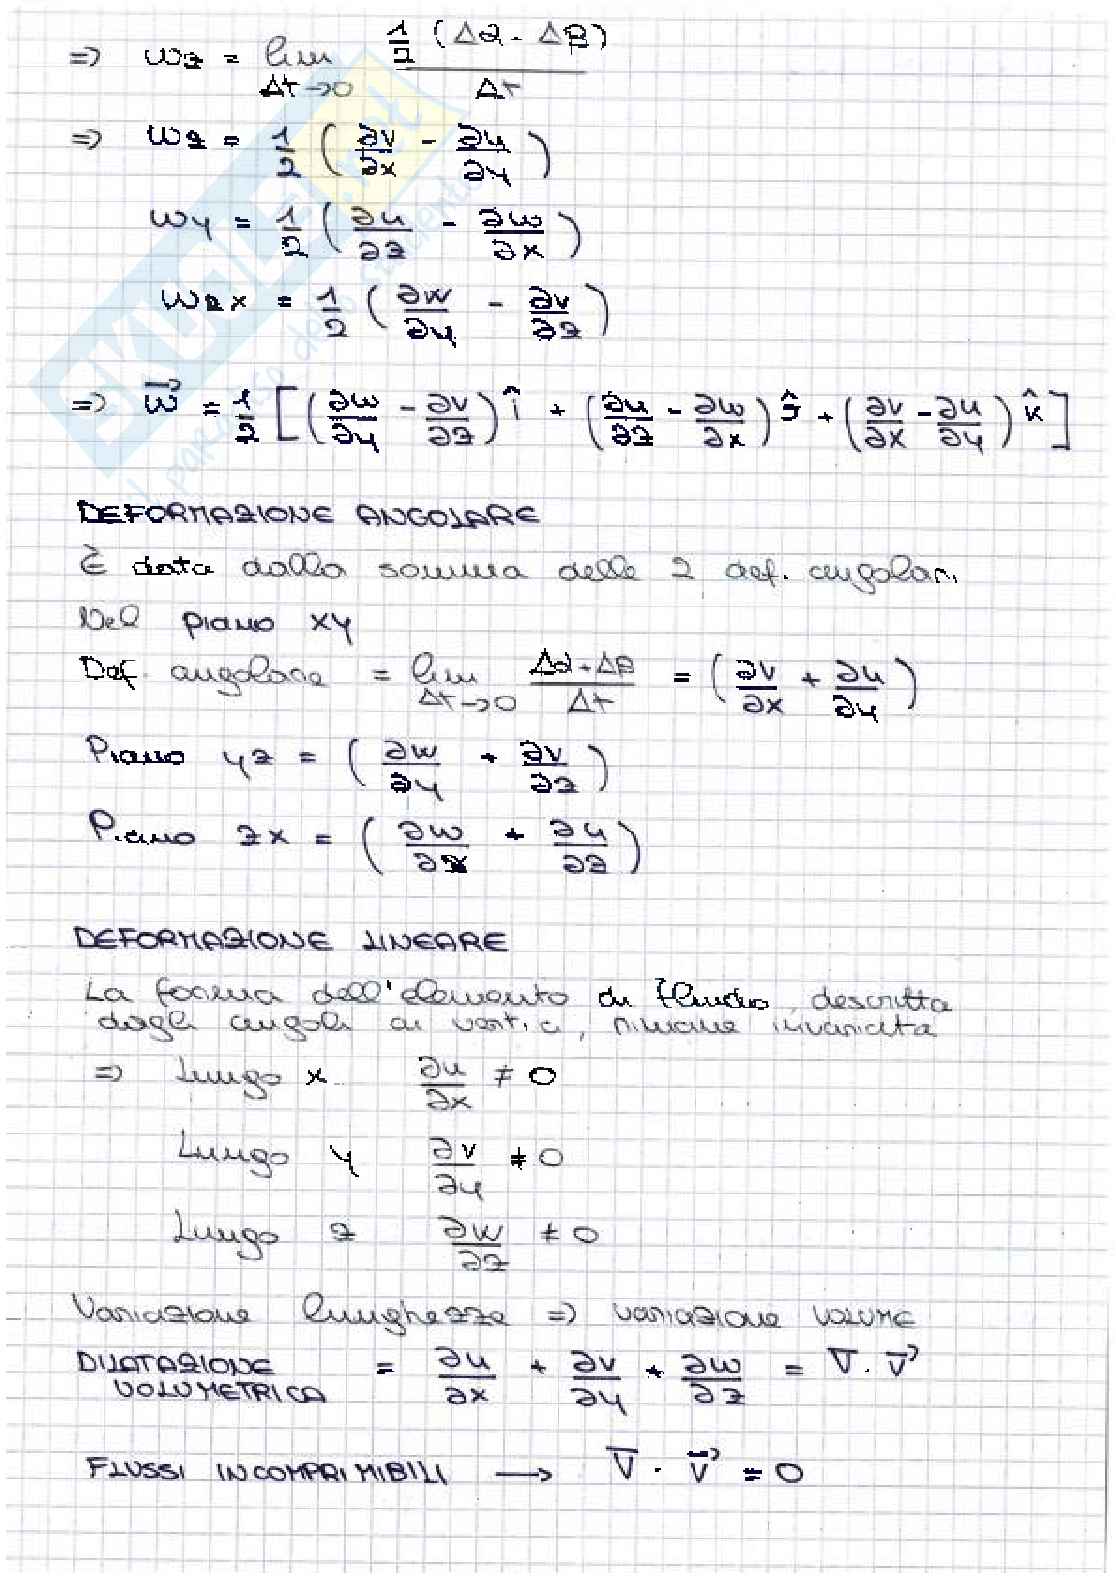 => ωz = lim Δt→0 1/2 (Δα - Δβ) / Δt
=> ωz = 1/2 ( ∂v/∂x - ∂u/∂y )
ωy = 1/2 ( ∂u/∂z - ∂w/∂x )
ωx = 1/2 ( ∂w/∂y - ∂v/∂z )
=> ω⃗ = 1/2 [ ( ∂w/∂y - ∂v/∂z ) î + ( ∂u/∂z - ∂w/∂x ) ĵ + ( ∂v/∂x - ∂u/∂y ) k̂ ]
DEFORMAZIONE ANGOLARE
È data dalla somma delle 2 def. angolari
Nel piano xy
Def. angolare = lim Δt→0 Δα + Δβ / Δt = ( ∂v/∂x + ∂u/∂y )
Piano yz = ( ∂w/∂y + ∂v/∂z )
Piano zx = ( ∂w/∂x + ∂u/∂z )
DEFORMAZIONE LINEARE
La forma dell'elemento di fluido, descritta
dagli angoli ai vertici, rimane invariata
=> Lungo x ∂u/∂x ≠ 0
Lungo y ∂v/∂y ≠ 0
Lungo z ∂w/∂z ≠ 0
Variazione lunghezze => variazione volume
DILATAZIONE VOLUMETRICA = ∂u/∂x + ∂v/∂y + ∂w/∂z = ∇ · V⃗
FLUSSI INCOMPRIMIBILI → ∇ · V⃗ = 0